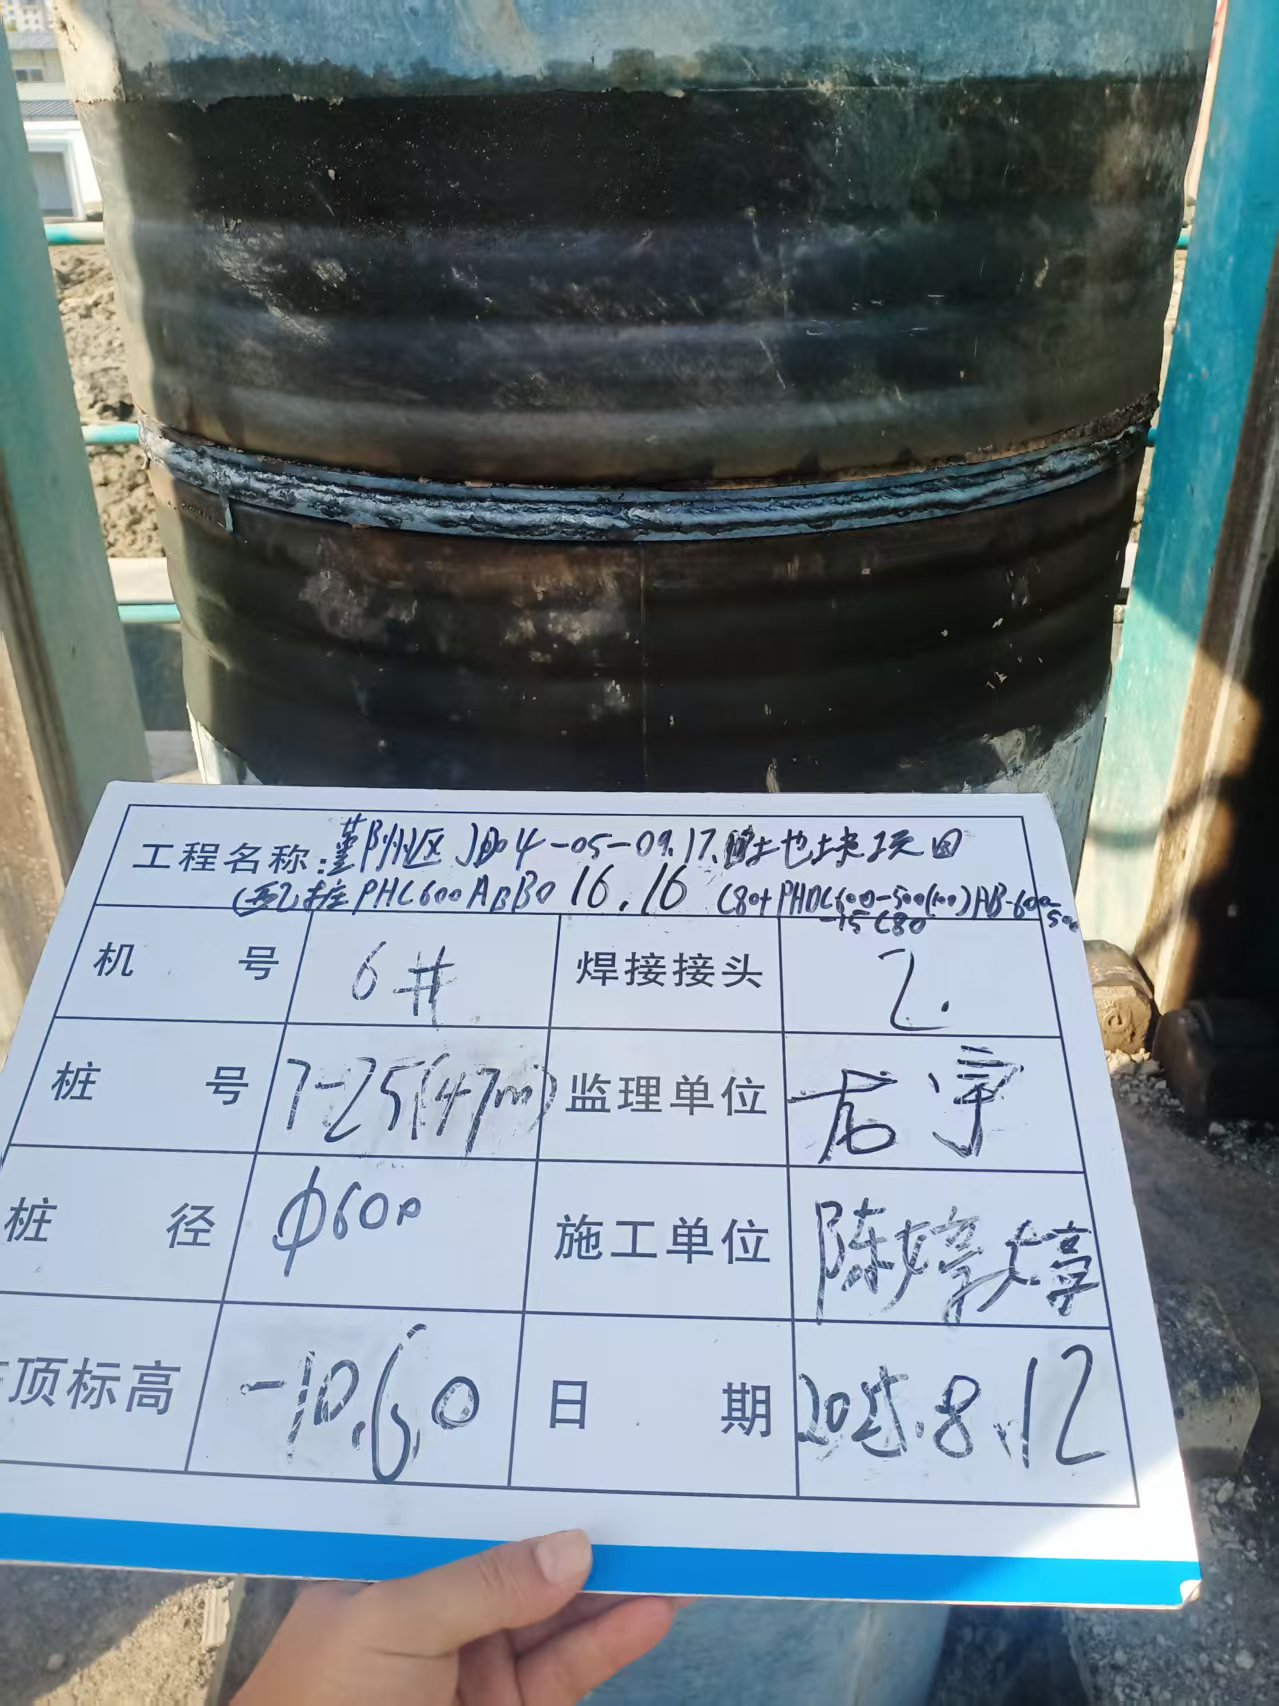 工程名称：鄞州区JD04-05-09.17.地块项目
(配)桩PHC600ABB0 16.16 C80+PHDC600-500(100)AB-600-500
-15 C80
机 号 6# 焊接接头 2.
桩 号 7-25(47m) 监理单位
桩 径 Φ600 施工单位 陈婷婷
顶标高 -10.60 日 期 2025.8.12